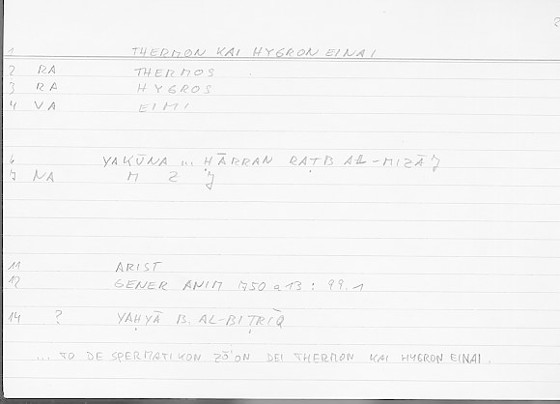 1 THERMON KAI HYGRON EINAI
2 RA THERMOS
3 RA HYGROS
4 VA EIMI
6 YAKŪNA ... ḤĀRRAN RAṬB AL-MIZĀǦ
7 NA M Z Ǧ
11 ARIST
12 GENER ANIM 750 a 13 : 99.1
14 ? YAḤYĀ B. AL-BIṬRĪQ
... TO DE SPERMATIKON ZŌ'ON DEI THERMON KAI HYGRON EINAI.